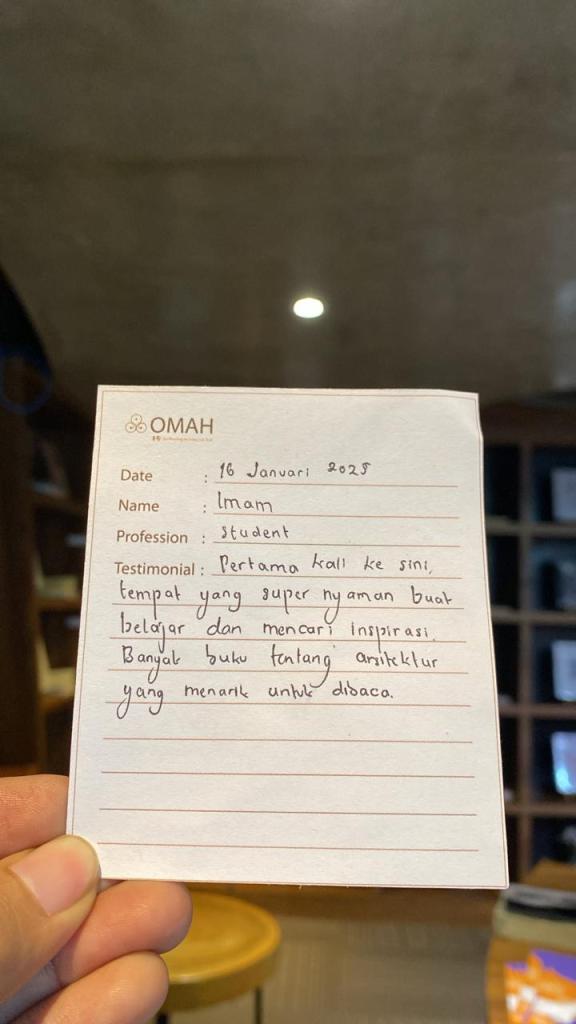 OMAH
Date : 16 Januari 2025
Name : Imam
Profession : Student
Testimonial : Pertama kali ke sini,
tempat yang super nyaman buat
belajar dan mencari inspirasi.
Banyak buku tentang arsitektur
yang menarik untuk dibaca.